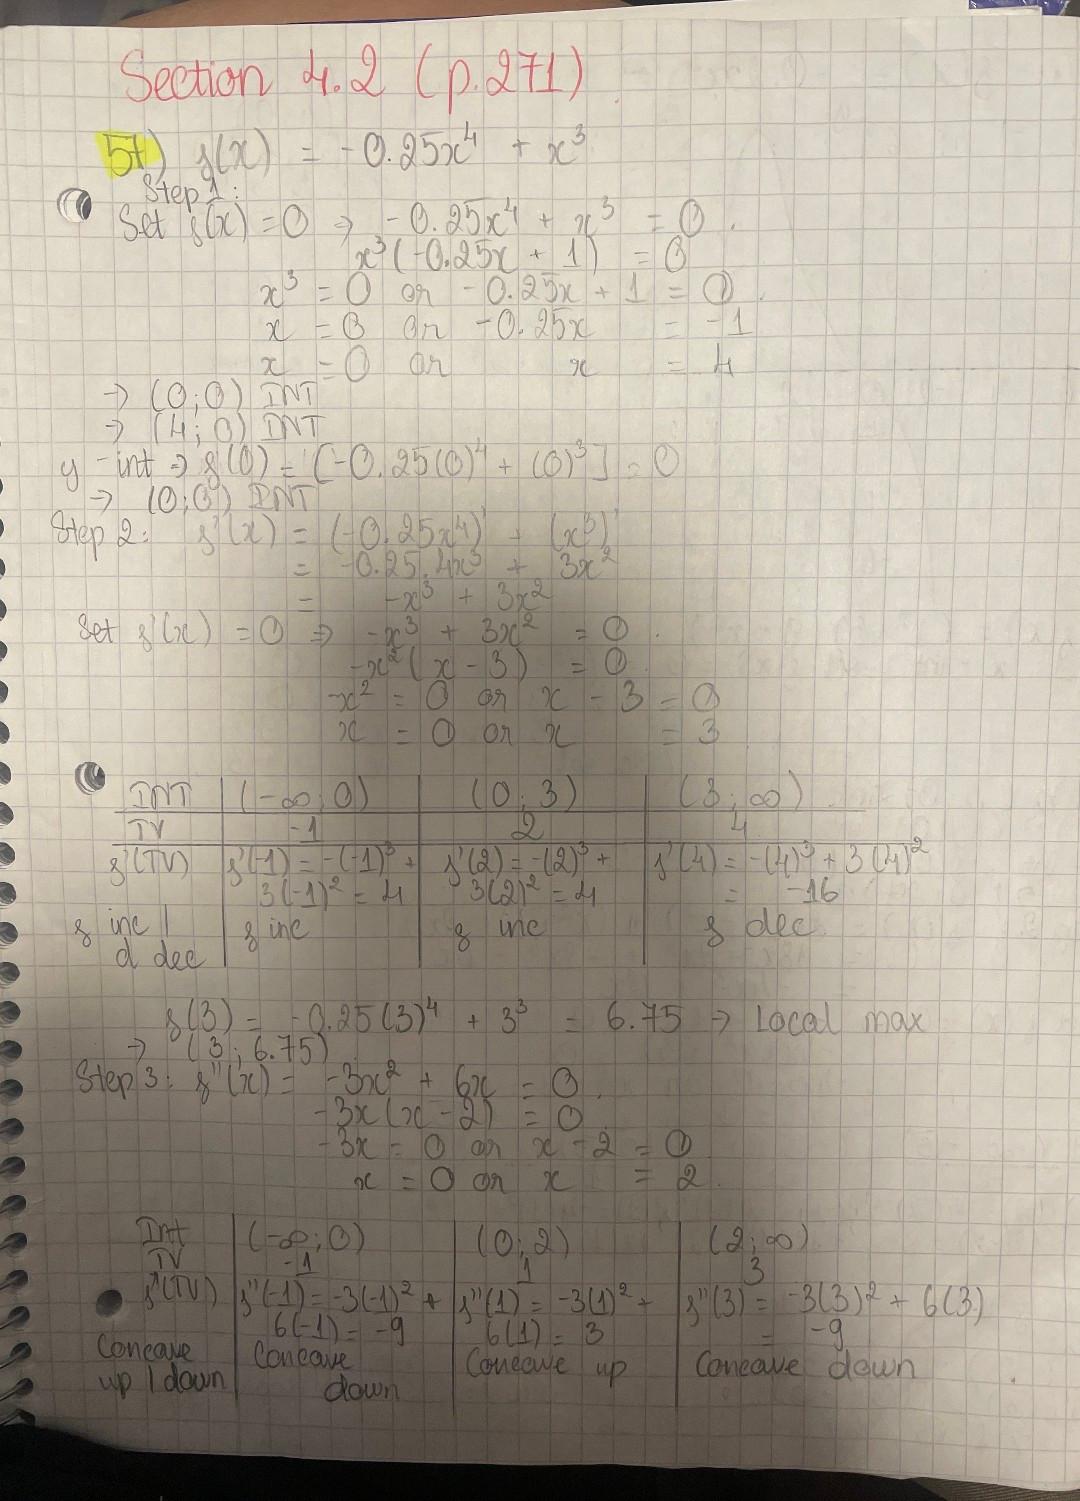 Section 4.2 (p.271)
57) f(x) = -0.25x⁴ + x³
Step 1:
Set f(x) = 0 ⇒ -0.25x⁴ + x³ = 0.
x³(-0.25x + 1) = 0
x³ = 0 or -0.25x + 1 = 0.
x = 0 or -0.25x = -1
x = 0 or x = 4
→ (0;0) INT
→ (4;0) INT
y-int ⇒ f(0) = [-0.25(0)⁴ + (0)³] = 0
→ (0;0) INT
Step 2: f'(x) = (-0.25x⁴)' + (x³)'
= -0.25.4x³ + 3x²
= -x³ + 3x²
Set f'(x) = 0 ⇒ -x³ + 3x² = 0.
-x²(x - 3) = 0.
-x² = 0 or x - 3 = 0
x = 0 or x = 3
INT (-∞;0) (0;3) (3;∞)
TV -1 2 4
f'(TV) f'(-1) = -(-1)³ + f'(2) = -(2)³ + f'(4) = -(4)³ + 3(4)²
3(-1)² = 4 3(2)² = 4 = -16
f inc | f inc f inc f dec
d dec
f(3) = -0.25(3)⁴ + 3³ = 6.75 → Local max
→ (3;6.75)
Step 3: f''(x) = -3x² + 6x = 0.
-3x(x - 2) = 0
-3x = 0 or x - 2 = 0
x = 0 or x = 2.
Int (-∞;0) (0;2) (2;∞)
TV -1 1 3
f''(TV) f''(-1) = -3(-1)² + f''(1) = -3(1)² + f''(3) = -3(3)² + 6(3)
6(-1) = -9 6(1) = 3 = -9
Concave Concave Concave up Concave down
up | down down